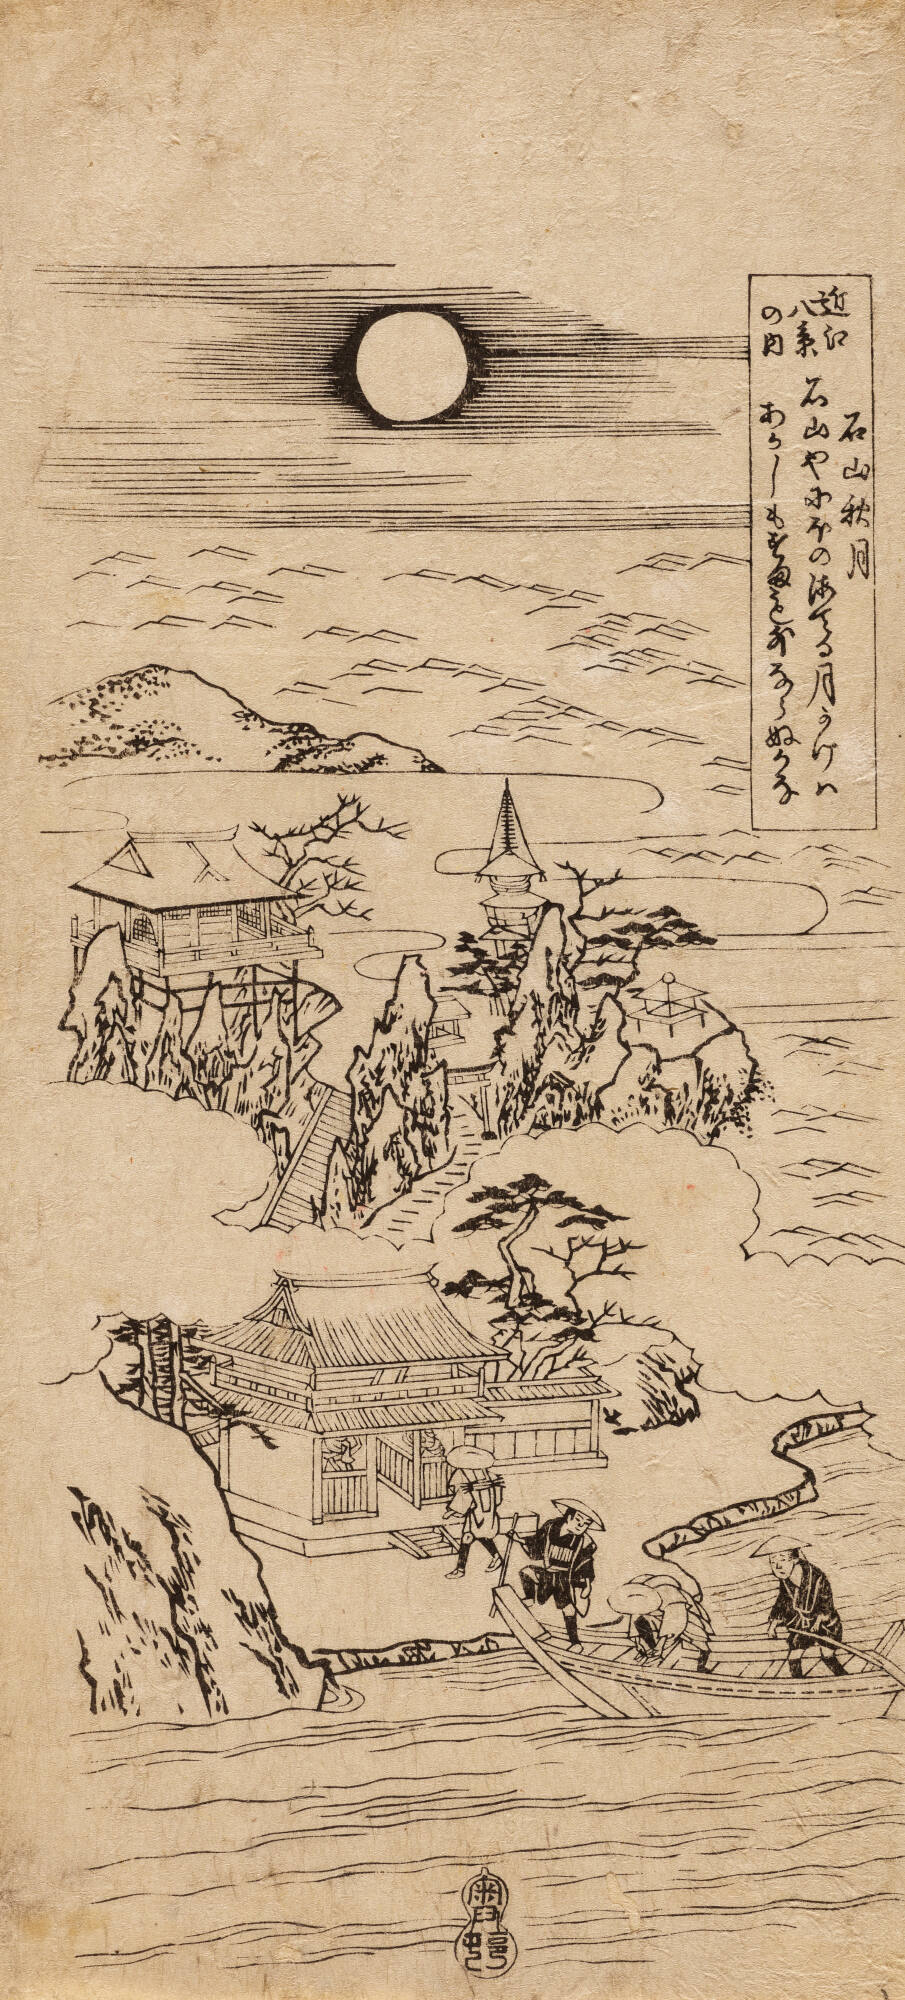 近江
八景
の内
石山秋月
石山やにほの海てる月かけハ
あかしもすまもほかならぬかな